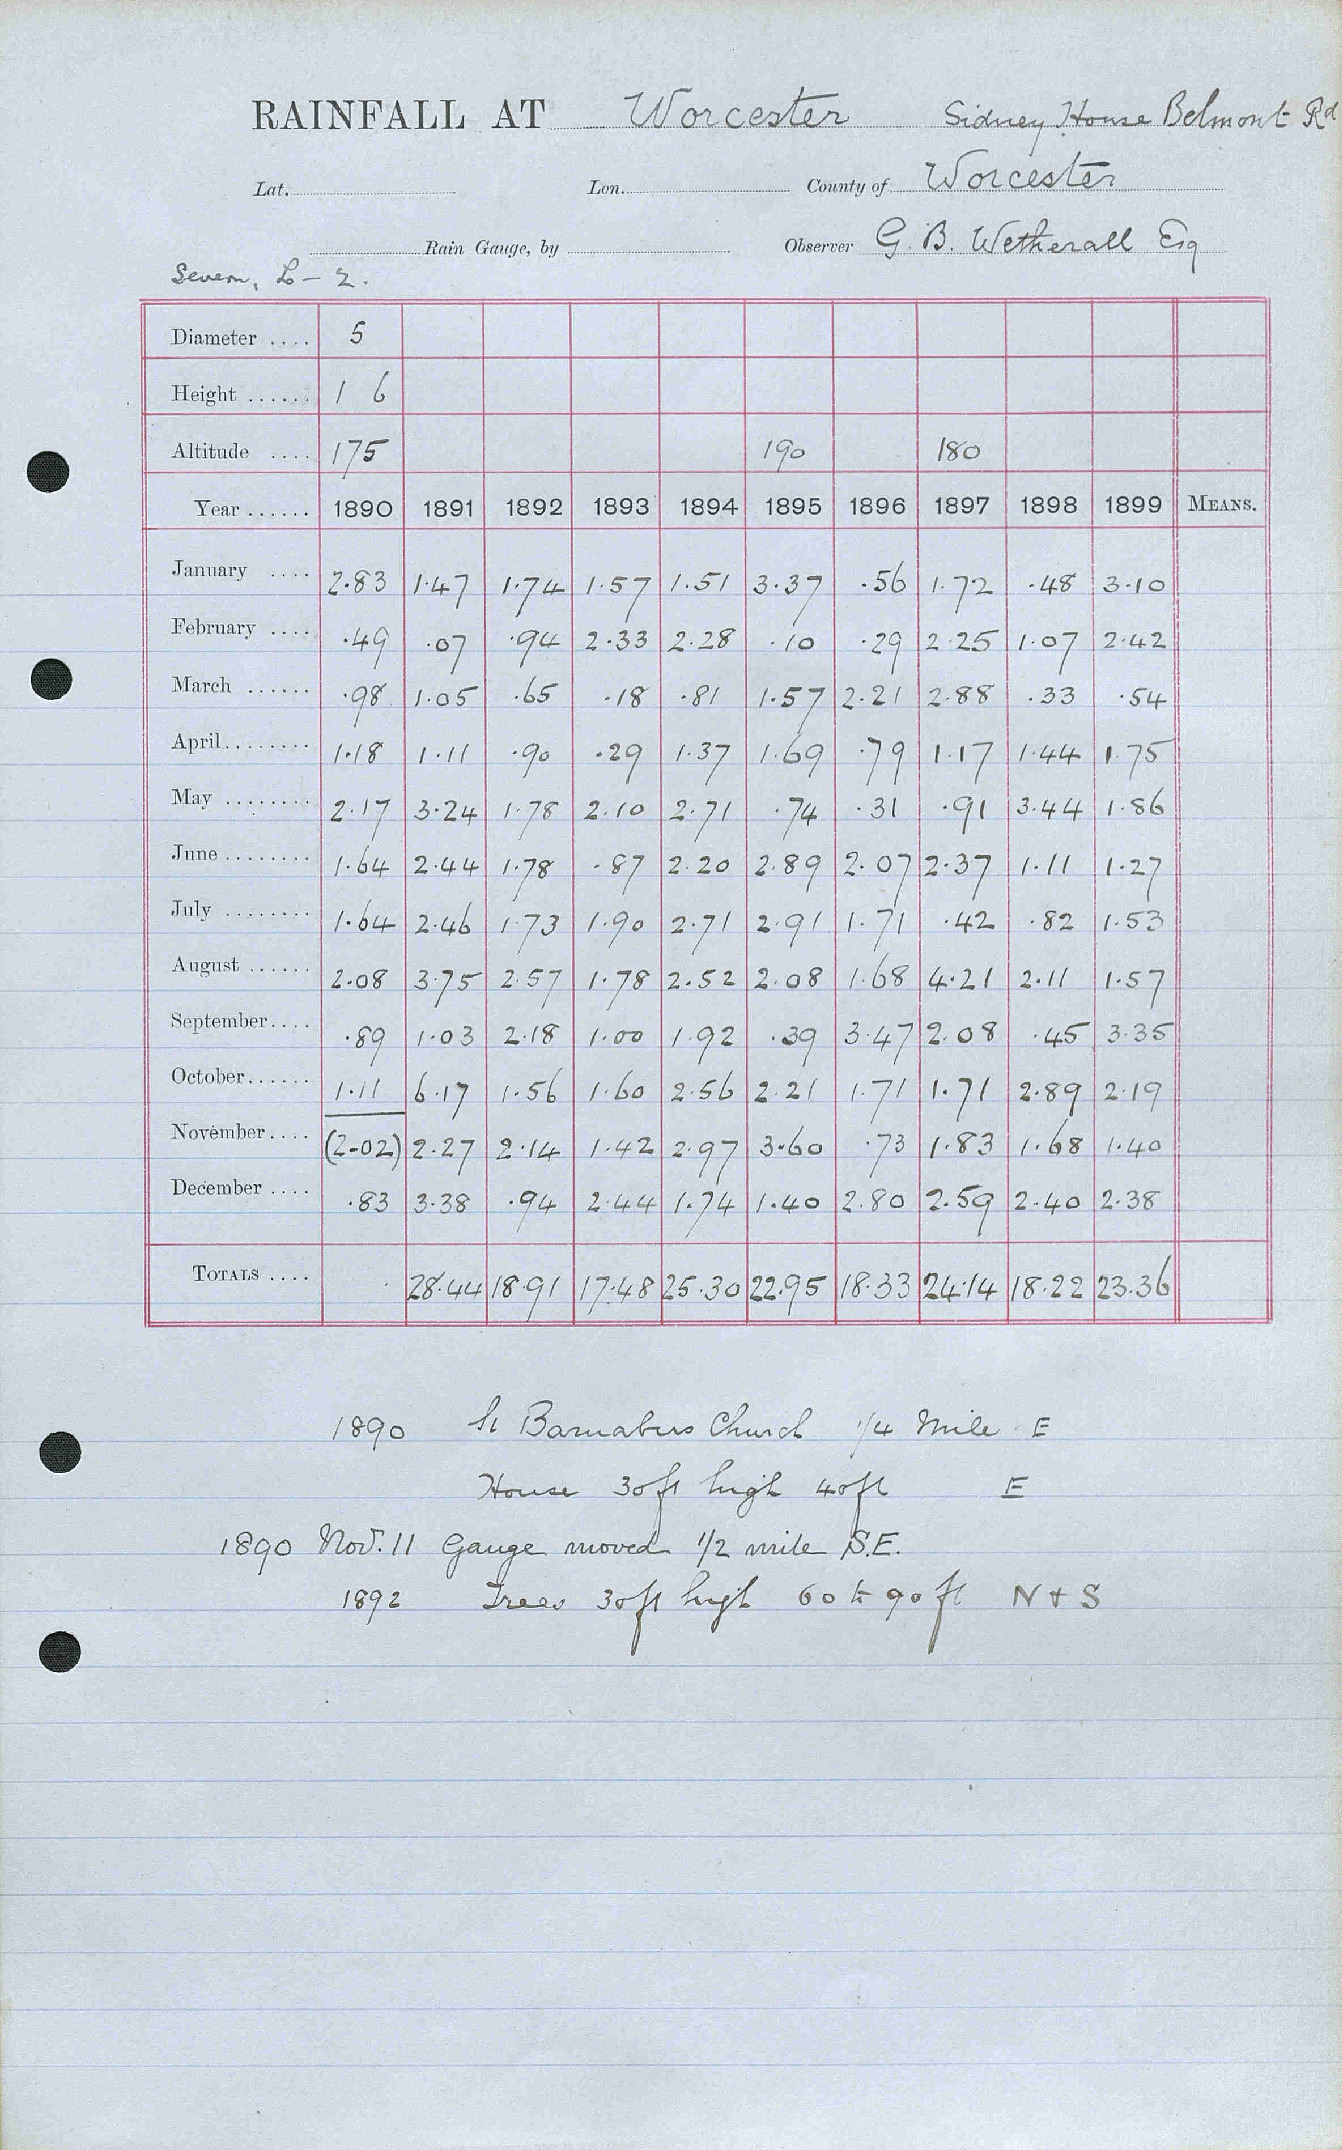 RAINFALL AT Worcester Sidney House Belmont Rd
Lat. Lon. County of Worcester
Rain Gauge, by Observer G. B. Wetherall Esq
Severn, L - 2.
Diameter .... 5
Height ...... 1 6
Altitude .... 175 190 180
Year ...... 1890 1891 1892 1893 1894 1895 1896 1897 1898 1899 MEANS.
January .... 2.83 1.47 1.74 1.57 1.51 3.37 .56 1.72 .48 3.10
February .... .49 .07 .94 2.33 2.28 .10 .29 2.25 1.07 2.42
March ...... .98 1.05 .65 .18 .81 1.57 2.21 2.88 .33 .54
April........ 1.18 1.11 .90 .29 1.37 1.69 .79 1.17 1.44 1.75
May ........ 2.17 3.24 1.78 2.10 2.71 .74 .31 .91 3.44 1.86
June ........ 1.64 2.44 1.78 .87 2.20 2.89 2.07 2.37 1.11 1.27
July ........ 1.64 2.46 1.73 1.90 2.71 2.91 1.71 .42 .82 1.53
August ...... 2.08 3.75 2.57 1.78 2.52 2.08 1.68 4.21 2.11 1.57
September.... .89 1.03 2.18 1.00 1.92 .39 3.47 2.08 .45 3.35
October...... 1.11 6.17 1.56 1.60 2.56 2.21 1.71 1.71 2.89 2.19
November.... (2.02) 2.27 2.14 1.42 2.97 3.60 .73 1.83 1.68 1.40
December .... .83 3.38 .94 2.44 1.74 1.40 2.80 2.59 2.40 2.38
TOTALS .... 28.44 18.91 17.48 25.30 22.95 18.33 24.14 18.22 23.36
1890 St Barnabus Church 1/4 Mile E
House 30ft high 40ft E
1890 Nov. 11 Gauge moved 1/2 mile S.E.
1892 Trees 30ft high 60 to 90 ft N + S